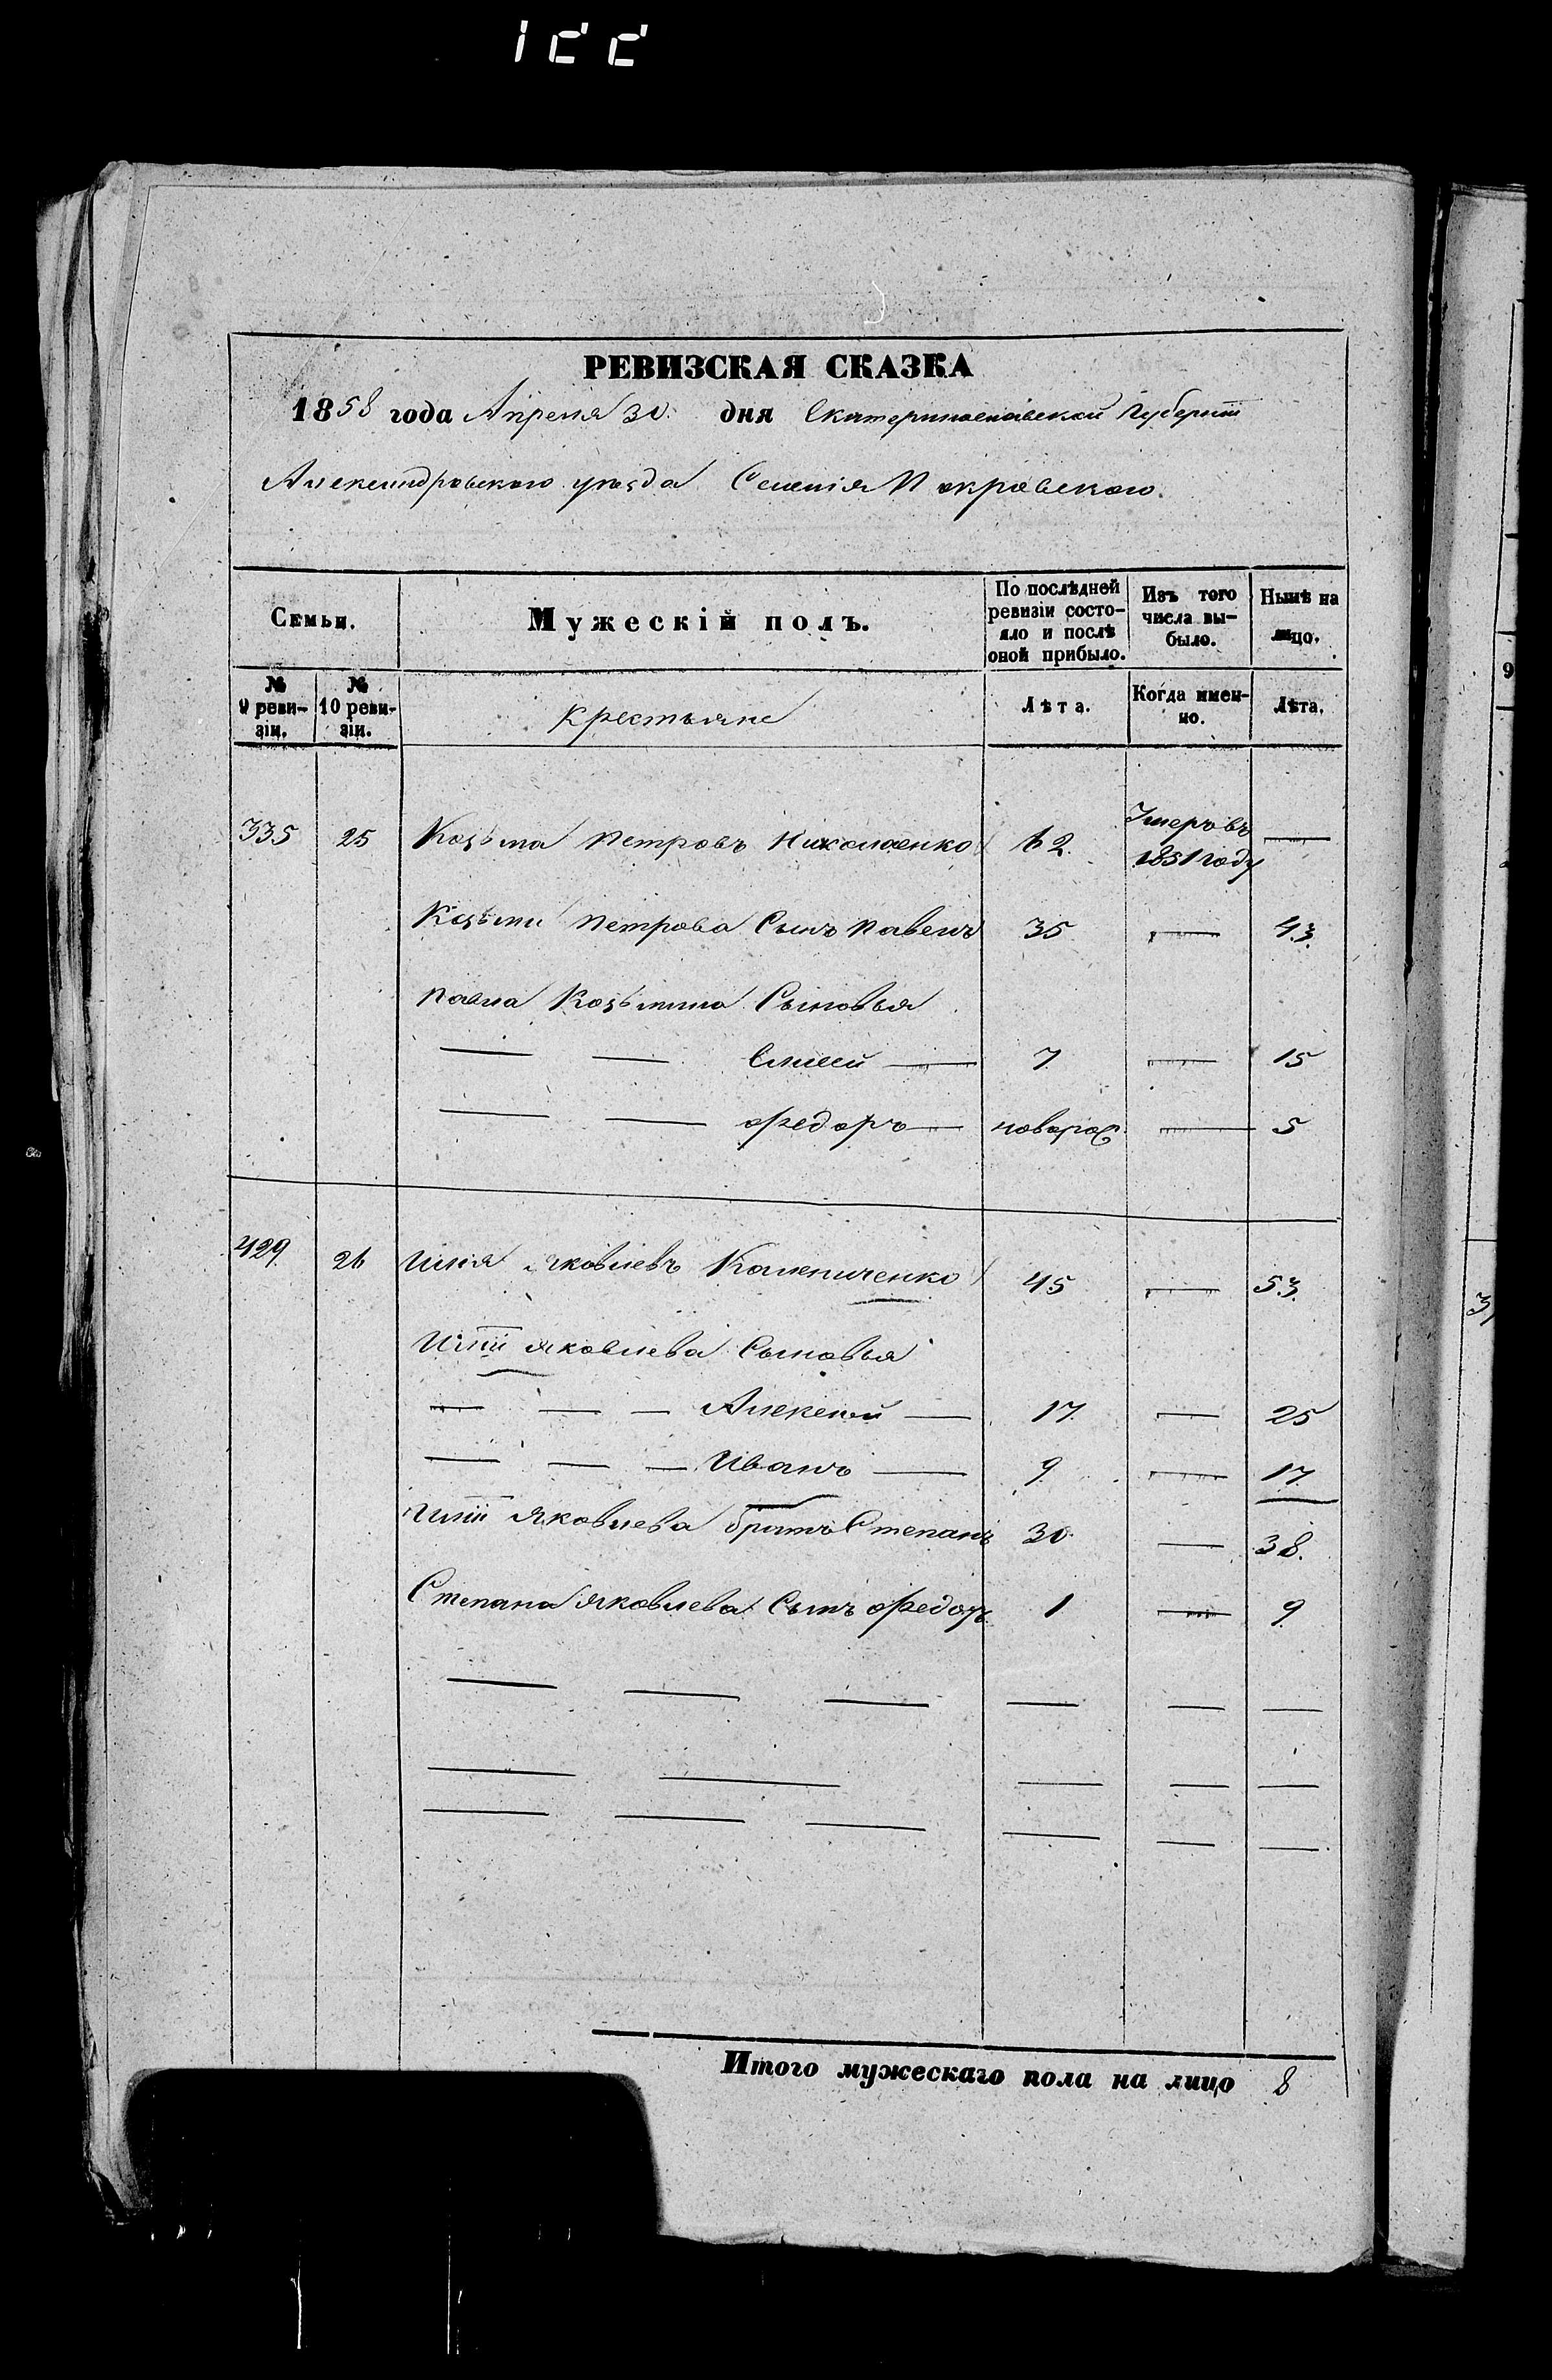 РЕВИЗСКАЯ СКАЗКА
1858 года Апреля 30 дня Екатеринославской Губерніи
Александровского уѣзда Селенія Покровского.
Семьи. Мужескій полъ. По послѣдней ревизіи состояло и послѣ оной прибыло. Изъ того числа выбыло. Нынѣ на лицо.
№ 9 ревизіи. № 10 ревизіи. Крестьяне Лѣта. Когда именно. Лѣта.
335 25 Козьма Петровъ Николаенко 62. Умеръ въ 1851 году —
Козьмы Петрова Сынъ Павелъ 35 — 43.
Павла Козьмина Сыновья
— — Елисей — 7 — 15
— — Федоръ — новорож. — 5
429. 26 Илія Яковлевъ Калениченко 45 — 53.
Иліи Яковлева Сыновья
— — — Алексей — 17. — 25
— — — Иванъ — 9 — 17.
Иліи Яковлева братъ Степанъ 30. — 38.
Степана Яковлева Сынъ Федоръ. 1 — 9
— — — — — —
— — — — —
— — — — — —
Итого мужескаго пола на лицо 8
9
3